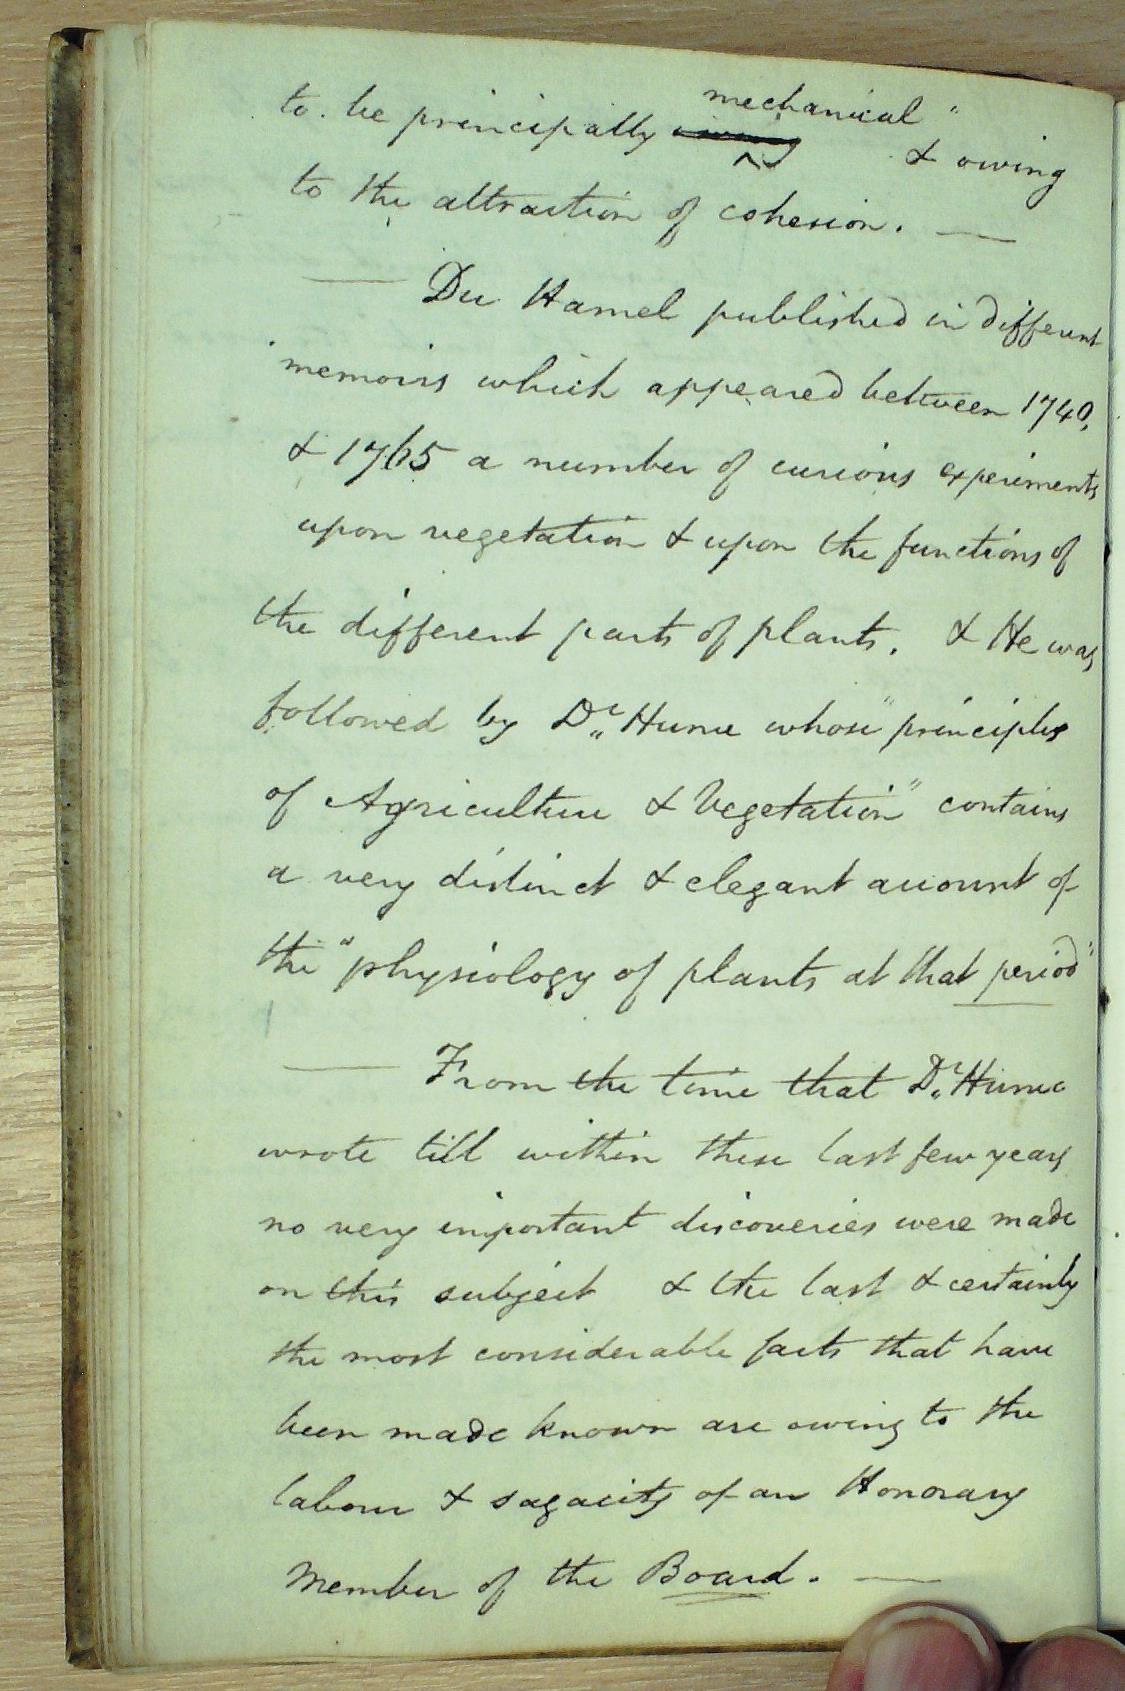 to be principally owing mechanical & owing
to the attraction of cohesion. —
— Du Hamel published in different
memoirs which appeared between 1740,
& 1765 a number of curious experiments
upon vegetation & upon the functions of
the different parts of plants. & He was
followed by Dr. Hume whose "principles
of Agriculture & Vegetation" contains
a very distinct & elegant account of
the "physiology of plants at that period"
— From the time that Dr. Hume
wrote till within these last few years
no very important discoveries were made
on this subject & the last & certainly
the most considerable facts that have
been made known are owing to the
labour & sagacity of an Honorary
Member of the Board. —